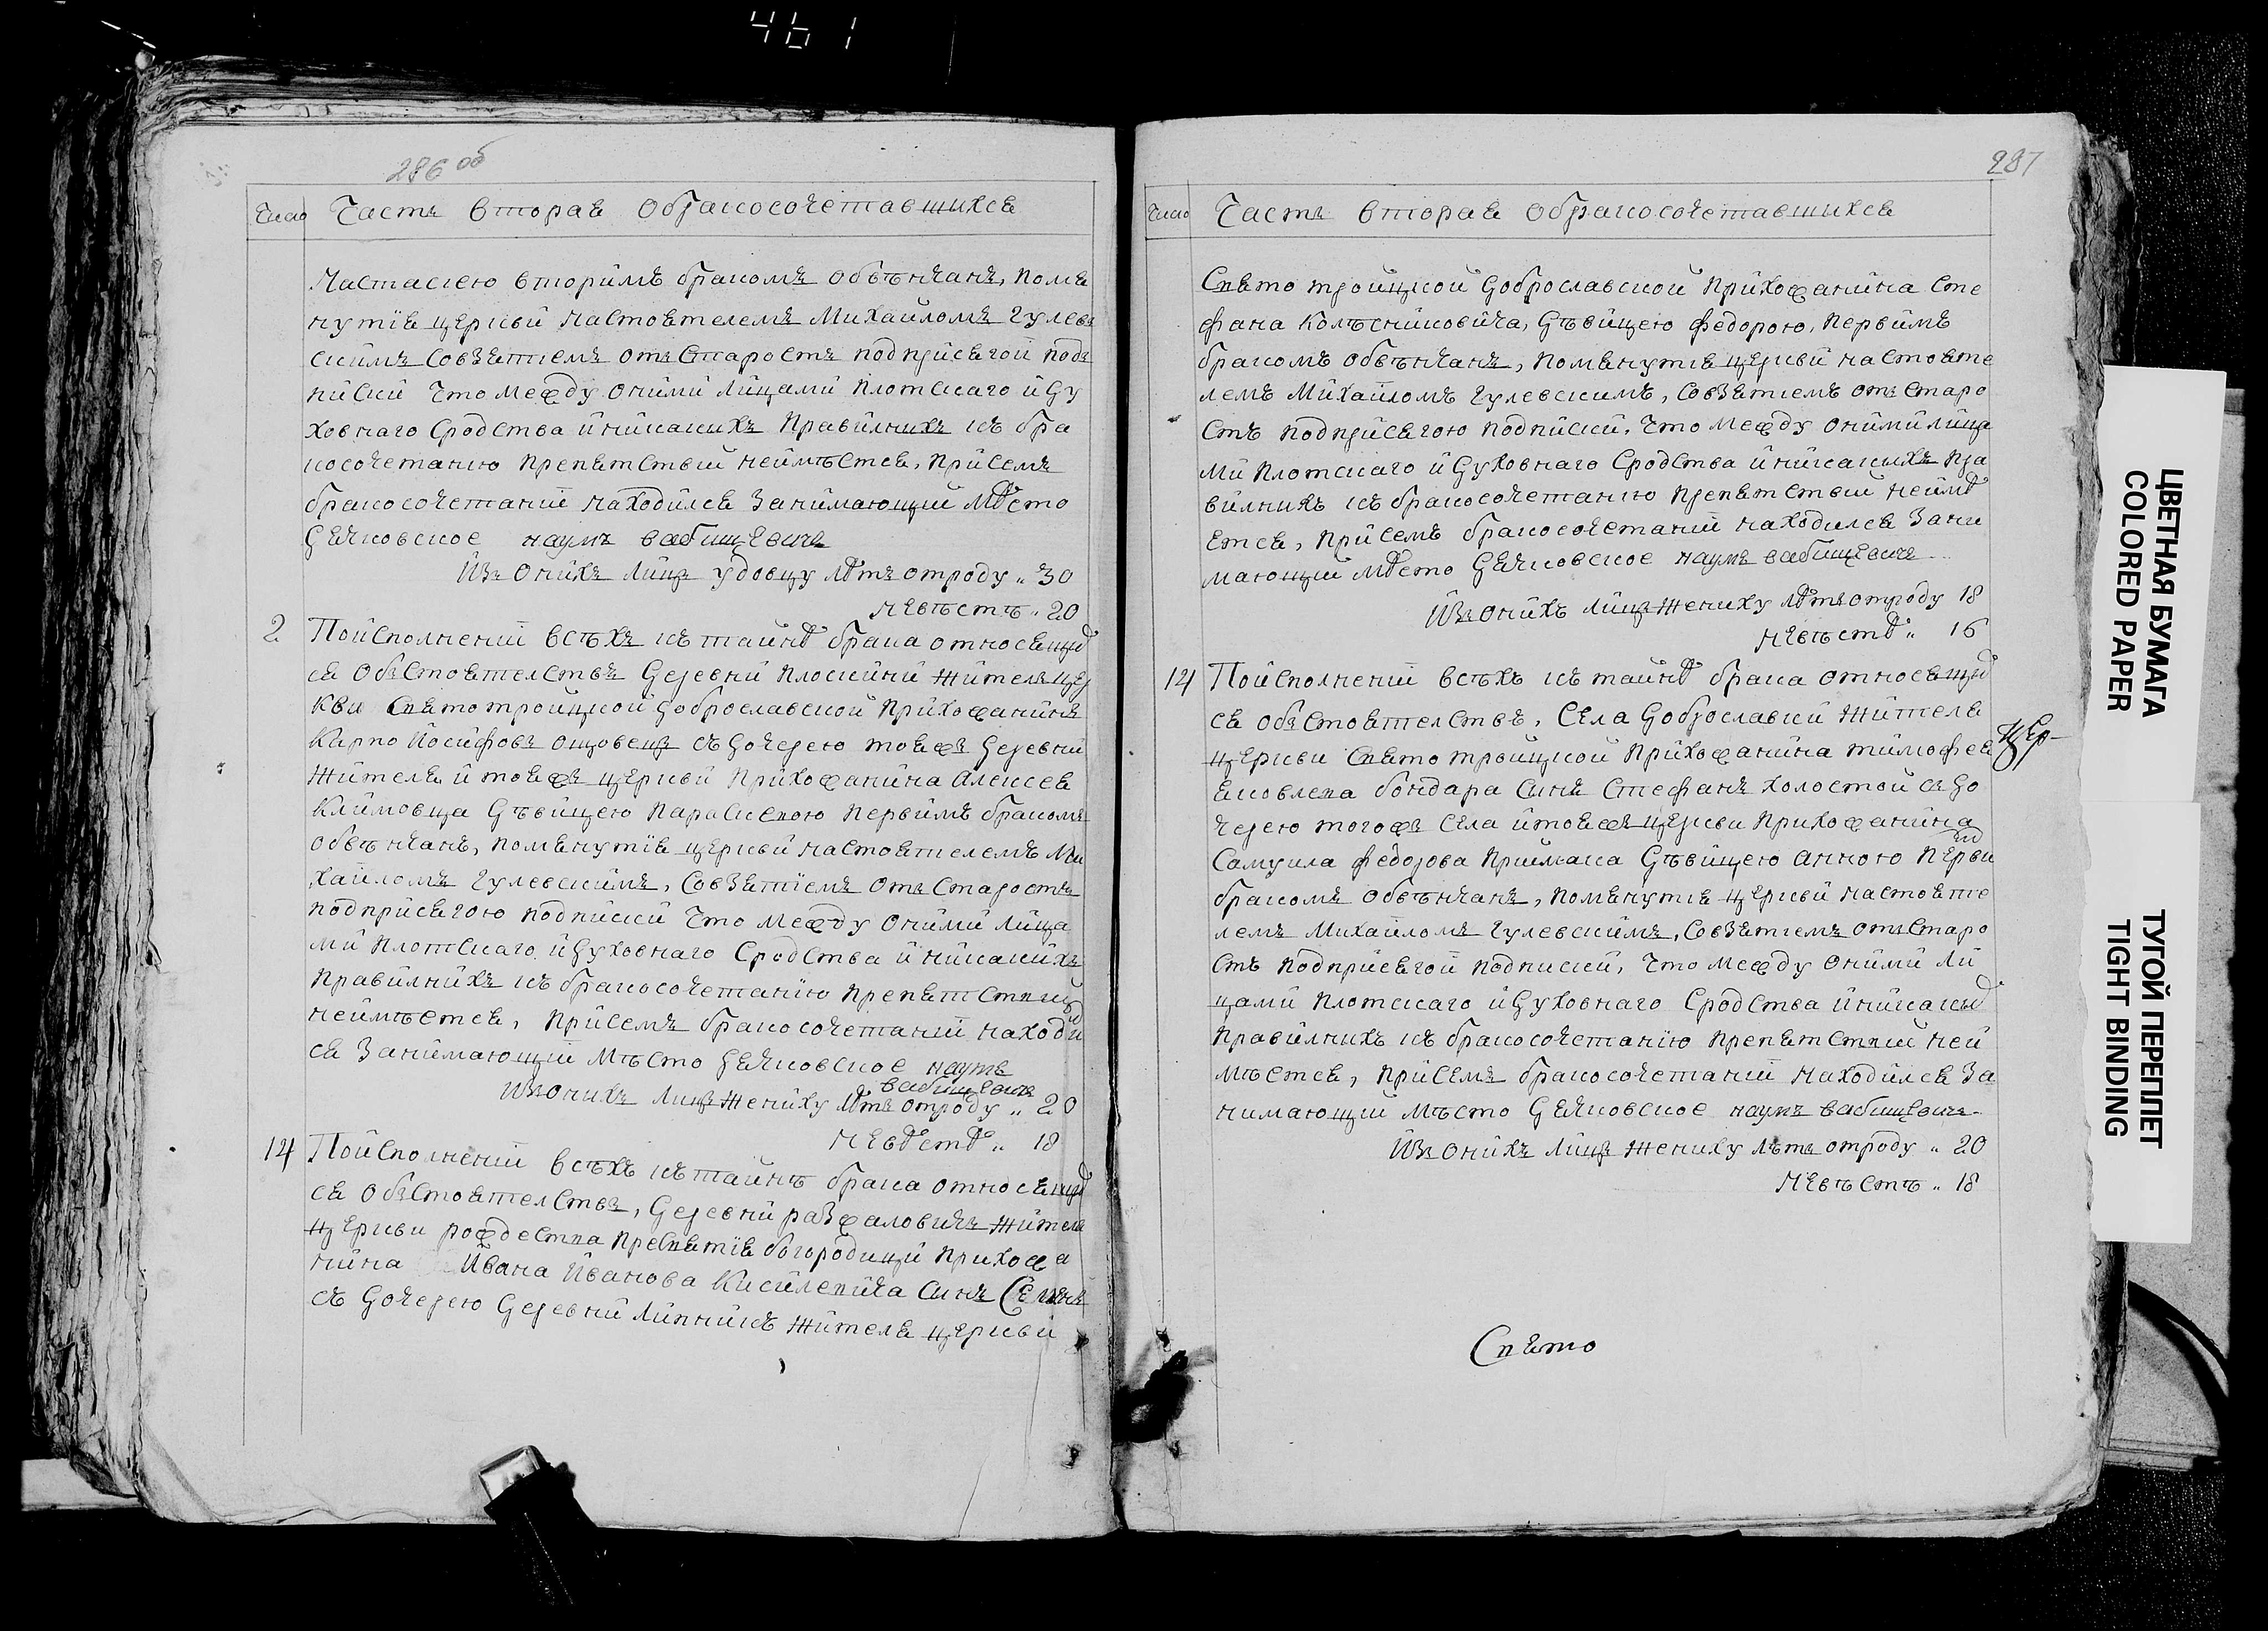 461
286 об
Число Часть вторая обракосочетавшихся
Настасіею вторимъ бракомъ обвѣнчанъ, помя
нутія церкви настоятелемъ Михаиломъ Гулев
скимъ совзятіемъ отъ старостъ подприсягой подъ
писки что между оними лицами плотскаго и ду
ховнаго сродства и никакихъ правилнихъ къ бра
косочетанію препятствій неимѣется, присемъ
бракосочетаніи находился занимающій мѣсто
дячковское наумъ вабищевичъ
Изъ онихъ лицъ удовцу лѣтъ отроду „ 30
невѣстѣ „ 20
2 Поисполненіи всѣхъ къ тайнѣ брака относящих
ся обстоятелствъ деревни Плоскини жителъ цер
кви Святотроицкой доброславской прихожанинъ
Карпо Иосифовъ Онцовецъ съ дочерею тояжъ деревни
жителя и тояжъ церкви прихожанина Алексея
Климовца дѣвицею Параскевою первимъ бракомъ
обвѣнчанъ, помянутія церкви настоятелемъ Ми
хаиломъ Гулевскимъ, совзятіемъ отъ старостъ
подприсягою подписки что между оними лица
ми плотскаго и духовнаго сродства и никакихъ
правилнихъ къ бракосочетанію препятствій
неимѣется, присемъ бракосочетаніи находил
ся занимающій мѣсто дячковское наумъ
вабищевичъ
Изъ онихъ лицъ жениху лѣтъ отроду „ 20
невѣстѣ „ 18
14 Поисполненіи всѣхъ къ тайнѣ брака относящих
ся обстоятелствъ, деревни разжаловичъ жителя
церкви рождества пресвятія богородици прихожа
нина Ивана Иванова Кисилевича синъ Семенъ
съ дочерею деревни Липникъ жителя церкви
287
Число Часть вторая обракосочетавшихся
Свято тройцкой доброславской прихожанина Сте
фана Колѣсниковича, дѣвицею Федорою, первимъ
бракомъ обвѣнчанъ, помянутія церкви настояте
лемъ Михаиломъ Гулевскимъ, совзятіемъ отъ старо
стъ подприсягою подписки, что между оними лица
ми плотскаго и духовнаго сродства и никакыхъ пра
вилнихъ къ бракосочетанію препятствій неимѣ
ется, присемъ бракосочетаніи находился зани
мающій мѣсто дячковское наумъ вабищевичъ
Изъ онихъ лицъ жениху лѣтъ отроду 18
невѣстѣ „ 16
14 Поисполненіи всѣхъ къ тайнѣ брака относящих
ся обстоятелствъ, села доброславки жителя
церкви Святотройцкой прихожанина тимофея
Яковлева бондара синъ Стефанъ холостой съ до
черею тогожъ села и тояжъ церкви прихожанина
Самуила Федорова Приймака дѣвицею анною перви
бракомъ обвѣнчанъ, помянутія церкви настояте
лемъ Михаиломъ Гулевскимъ, совзятіемъ отъ старо
стъ подприсягой подписки, что между оними ли
цами плотскаго и духовнаго сродства и никаких
правилнихъ къ бракосочетанію препятствій неи
мѣется, присемъ бракосочетаніи находился за
нимающій мѣсто дячковское наумъ вабищевичъ
Изъ онихъ лицъ жениху лѣтъ отроду „ 20
невѣстѣ „ 18
Цер-
Свято
ЦВЕТНАЯ БУМАГА
COLORED PAPER
ТУГОЙ ПЕРЕПЛЕТ
TIGHT BINDING